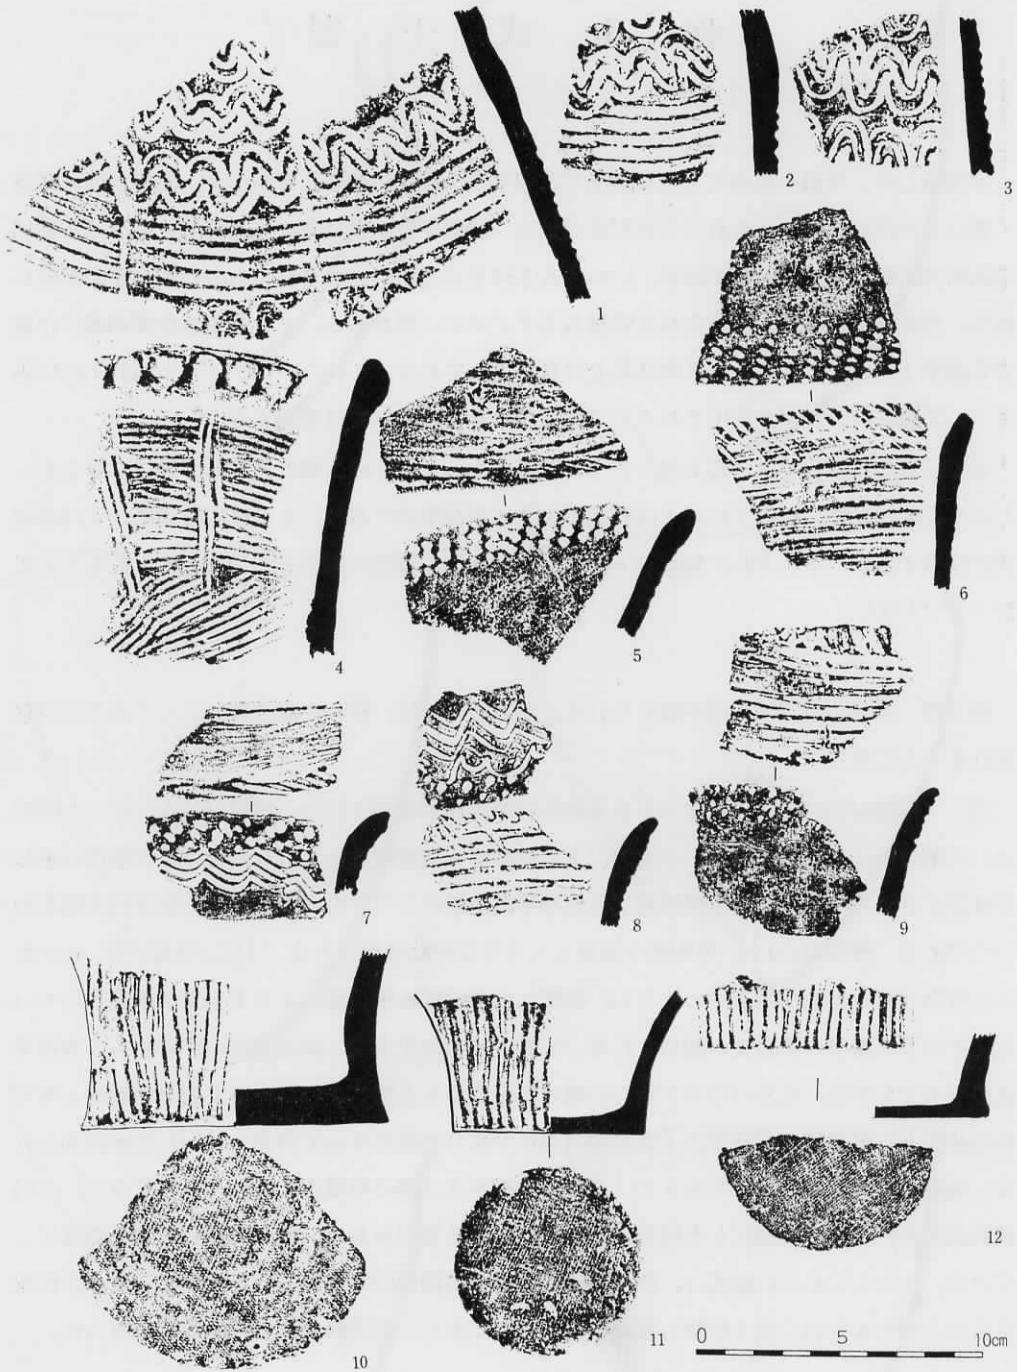 1
2
3
4
5
6
7
8
9
10
11
12
0 5 10cm